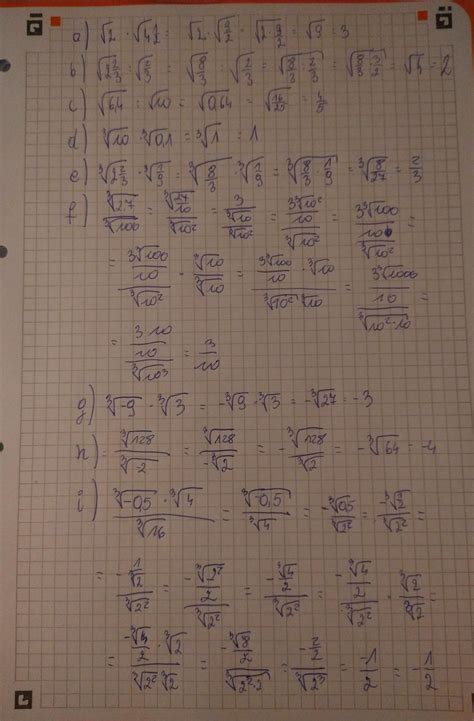 a) √2 · √4½ = √2 · √9/2 = √2·9/2 = √9 = 3
b) √2⅔ : √⅔ = √8/3 : √2/3 = √8/3 : 2/3 = √8/3 · 3/2 = √4 = 2
c) √6,4 : √10 = √0,64 = √16/25 = 4/5
d) ³√10 · ³√0,1 = ³√1 = 1
e) ³√2⅔ · ³√1/9 = ³√8/3 · ³√1/9 = ³√8/3 · 1/9 = ³√8/27 = 2/3
f) ³√2,7 / ³√100 = ³√27/10 / ³√10² = 3/³√10 / ³√10² = 3³√10²/10 / ³√10² = 3³√100/10 / ³√10² =
= 3³√100/10 / ³√10² · ³√10/³√10 = 3³√100/10 · ³√10 / ³√10² ³√10 = 3³√1000/10 / ³√10²·10 =
= 3·10/10 / ³√10³ = 3/10
g) ³√-9 · ³√3 = -³√9 · ³√3 = -³√27 = -3
h) ³√128 / ³√-2 = ³√128 / -³√2 = -³√128/³√2 = -³√64 = -4
i) ³√-0,5 · ³√4 / ³√16 = ³√-0,5 / ³√4 = -³√0,5 / ³√2² = -³√1/2 / ³√2² =
= -1/³√2 / ³√2² = -³√2²/2 / ³√2² = -³√4/2 / ³√2² = -³√4/2 / ³√2² · ³√2/³√2 =
= -³√4/2 · ³√2 / ³√2² ³√2 = -³√8/2 / ³√2²·2 = -2/2 / ³√2³ = -1/2 = -1/2